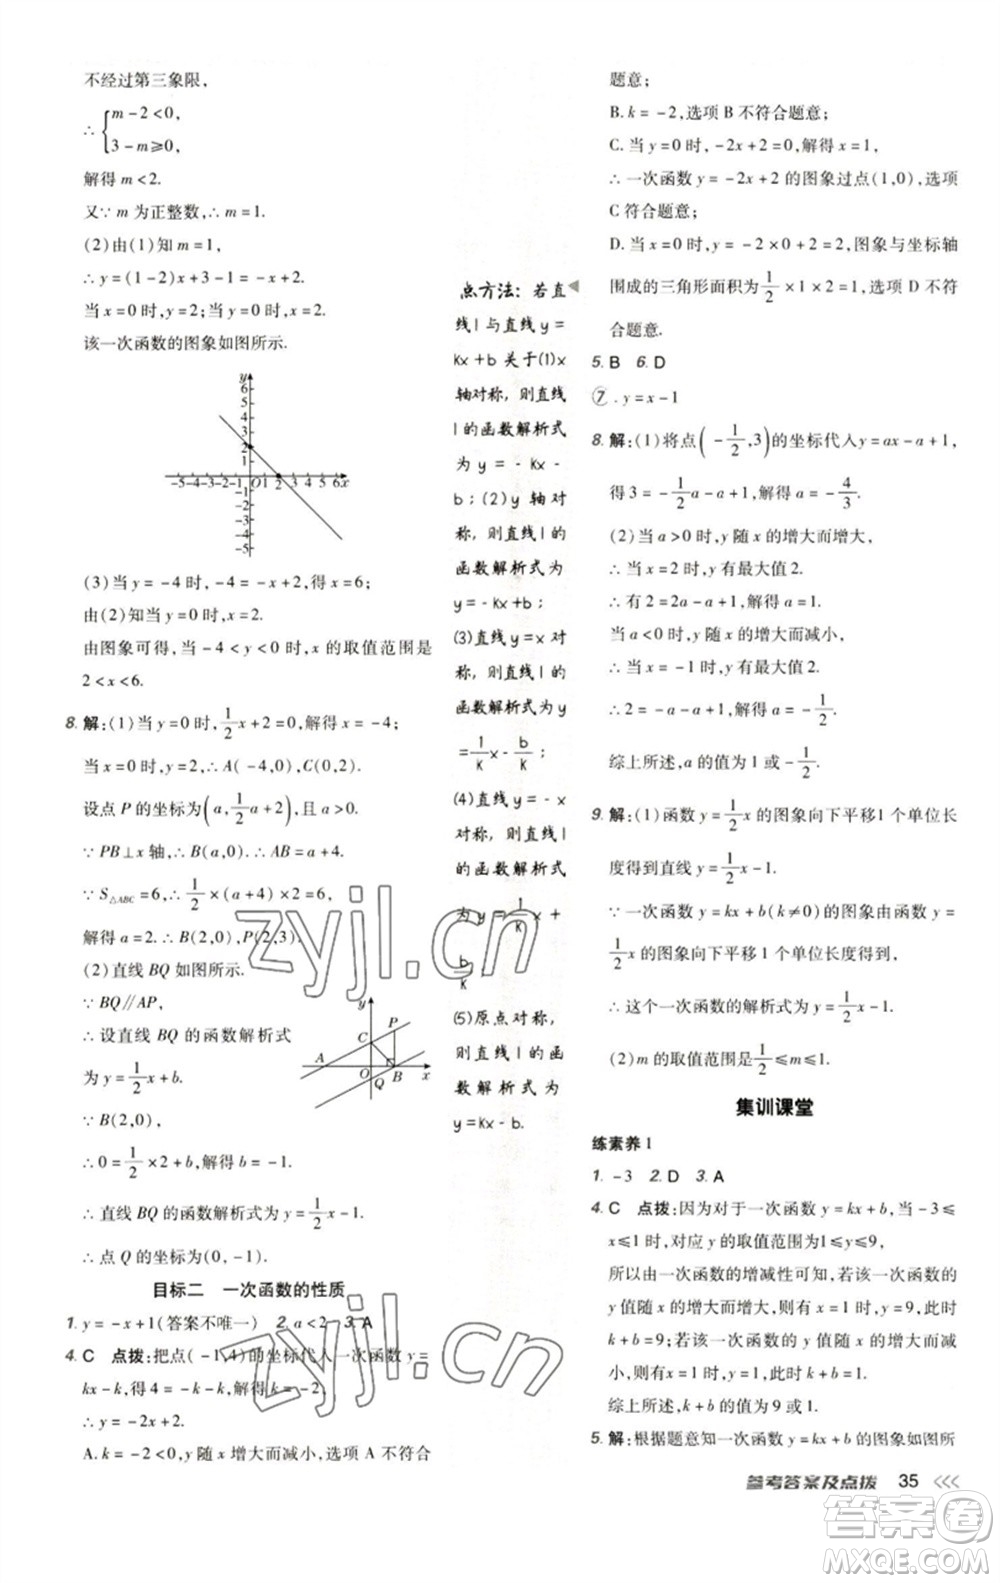 不经过第三象限,
∴ { m-2<0,
3-m≥0,
解得 m<2.
又∵ m 为正整数,∴ m=1.
(2)由(1)知 m=1,
∴ y=(1-2)x+3-1=-x+2.
当 x=0 时,y=2;当 y=0 时,x=2.
该一次函数的图象如图所示.
y
6
5
4
3
2
1
-5-4-3-2-1 O1 2 3 4 5 6x
-1
-2
-3
-4
-5
(3)当 y=-4 时,-4=-x+2,得 x=6;
由(2)知当 y=0 时,x=2.
由图象可得,当 -4<y<0 时,x 的取值范围是
2<x<6.
8. 解:(1)当 y=0 时,1/2x+2=0,解得 x=-4;
当 x=0 时,y=2,∴ A(-4,0),C(0,2).
设点 P 的坐标为(a,1/2a+2),且 a>0.
∵ PB⊥x 轴,∴ B(a,0).∴ AB=a+4.
∵ S△ABC=6,∴ 1/2×(a+4)×2=6,
解得 a=2.∴ B(2,0),P(2,3).
(2)直线 BQ 如图所示.
∵ BQ∥AP,
∴ 设直线 BQ 的函数解析式
为 y=1/2x+b.
∵ B(2,0),
y
P
C
A
O
Q
B
x
∴ 0=1/2×2+b,解得 b=-1.
∴ 直线 BQ 的函数解析式为 y=1/2x-1.
∴ 点 Q 的坐标为(0,-1).
目标二 一次函数的性质
1. y=-x+1(答案不唯一) 2. a<2 3. A
4. C 点拨:把点(-1,4)的坐标代入一次函数 y=
kx-k,得 4=-k-k,解得 k=-2.
∴ y=-2x+2.
A. k=-2<0,y 随 x 增大而减小,选项 A 不符合
点方法:若直
线 l 与直线 y=
kx+b 关于(1)x
轴对称,则直线
l 的函数解析式
为 y=-kx-
b;(2)y 轴对
称,则直线 l 的
函数解析式为
y=-kx+b;
(3)直线 y=x 对
称,则直线 l 的
函数解析式为 y
=1/k x-b/k;
(4)直线 y=-x
对称,则直线 l
的函数解析式
为 y=1/k x+
b/k
(5)原点对称,
则直线 l 的函
数解析式为
y=kx-b.
题意;
B. k=-2,选项 B 不符合题意;
C. 当 y=0 时,-2x+2=0,解得 x=1,
∴ 一次函数 y=-2x+2 的图象过点(1,0),选项
C 符合题意;
D. 当 x=0 时,y=-2×0+2=2,图象与坐标轴
围成的三角形面积为1/2×1×2=1,选项 D 不符
合题意.
5. B 6. D
7. y=x-1
8. 解:(1)将点(-1/2,3)的坐标代入 y=ax-a+1,
得 3=-1/2a-a+1,解得 a=-4/3.
(2)当 a>0 时,y 随 x 的增大而增大,
∴ 当 x=2 时,y 有最大值 2.
∴ 有 2=2a-a+1,解得 a=1.
当 a<0 时,y 随 x 的增大而减小,
∴ 当 x=-1 时,y 有最大值 2.
∴ 2=-a-a+1,解得 a=-1/2.
综上所述,a 的值为 1 或-1/2.
9. 解:(1)函数 y=1/2x 的图象向下平移1 个单位长
度得到直线 y=1/2x-1.
∵ 一次函数 y=kx+b(k≠0)的图象由函数 y=
1/2x 的图象向下平移 1 个单位长度得到,
∴ 这个一次函数的解析式为 y=1/2x-1.
(2)m 的取值范围是1/2≤m≤1.
集训课堂
练素养 1
1. -3 2. D 3. A
4. C 点拨:因为对于一次函数 y=kx+b,当 -3≤
x≤1 时,对应 y 的取值范围为 1≤y≤9,
所以由一次函数的增减性可知,若该一次函数的
y 值随 x 值的增大而增大,则有 x=1 时,y=9,此时
k+b=9;若该一次函数的 y 值随 x 值的增大而减
小,则有 x=1 时,y=1,此时 k+b=1.
综上所述,k+b 的值为 9 或 1.
5. 解:根据题意知一次函数 y=kx+b 的图象如图所
参考答案及点拨 35
zyjl.cn
zyjl.cn
答案圈
MXQE.COM